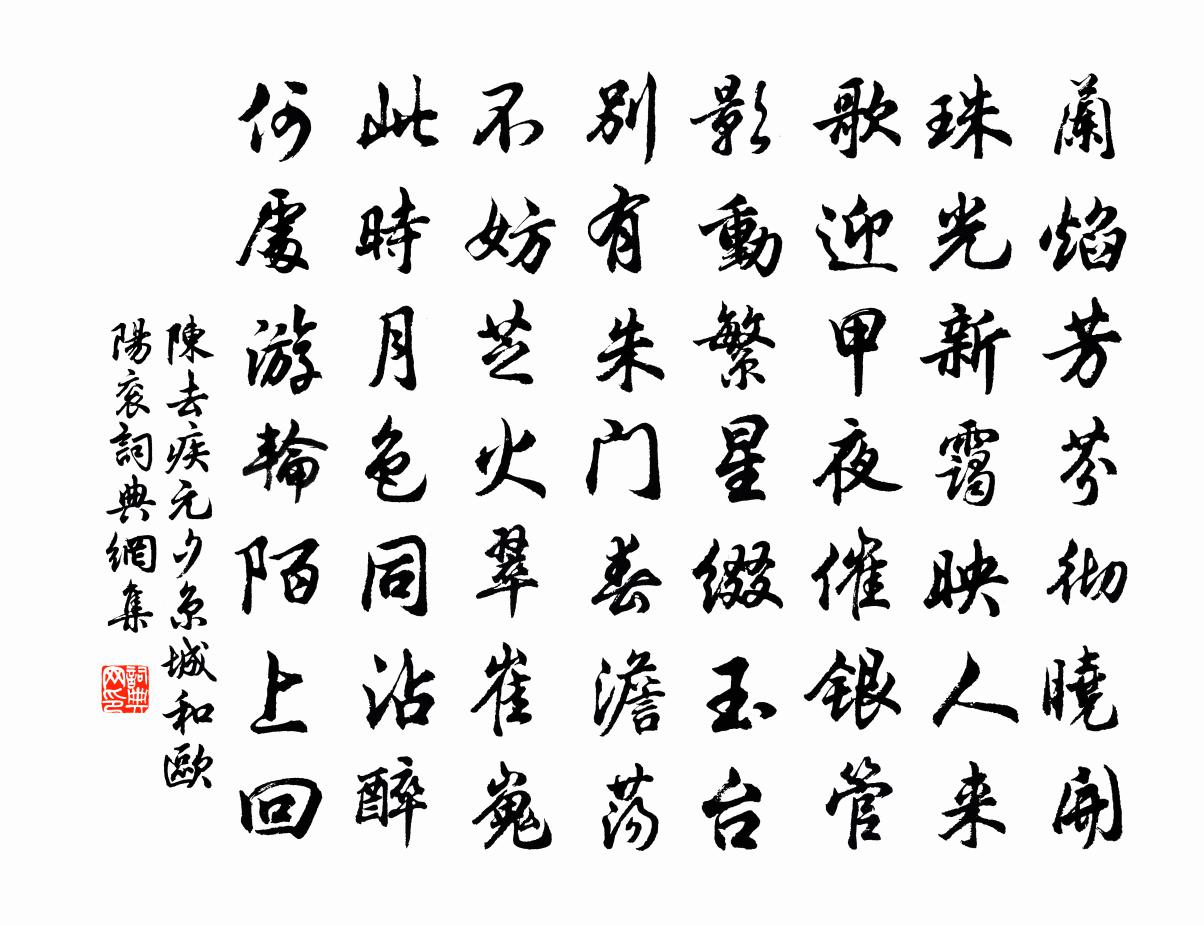 蘭焰芳芬彻曉開
珠光新靄映人来
歌迎甲夜催銀管
影動繁星綴玉台
別有朱门春澹荡
不妨芝火翠崔嵬
此時月色同沾醉
何處游輪陌上回
陳去疾元夕京城和歐
陽衮詞典網集
詞典网印